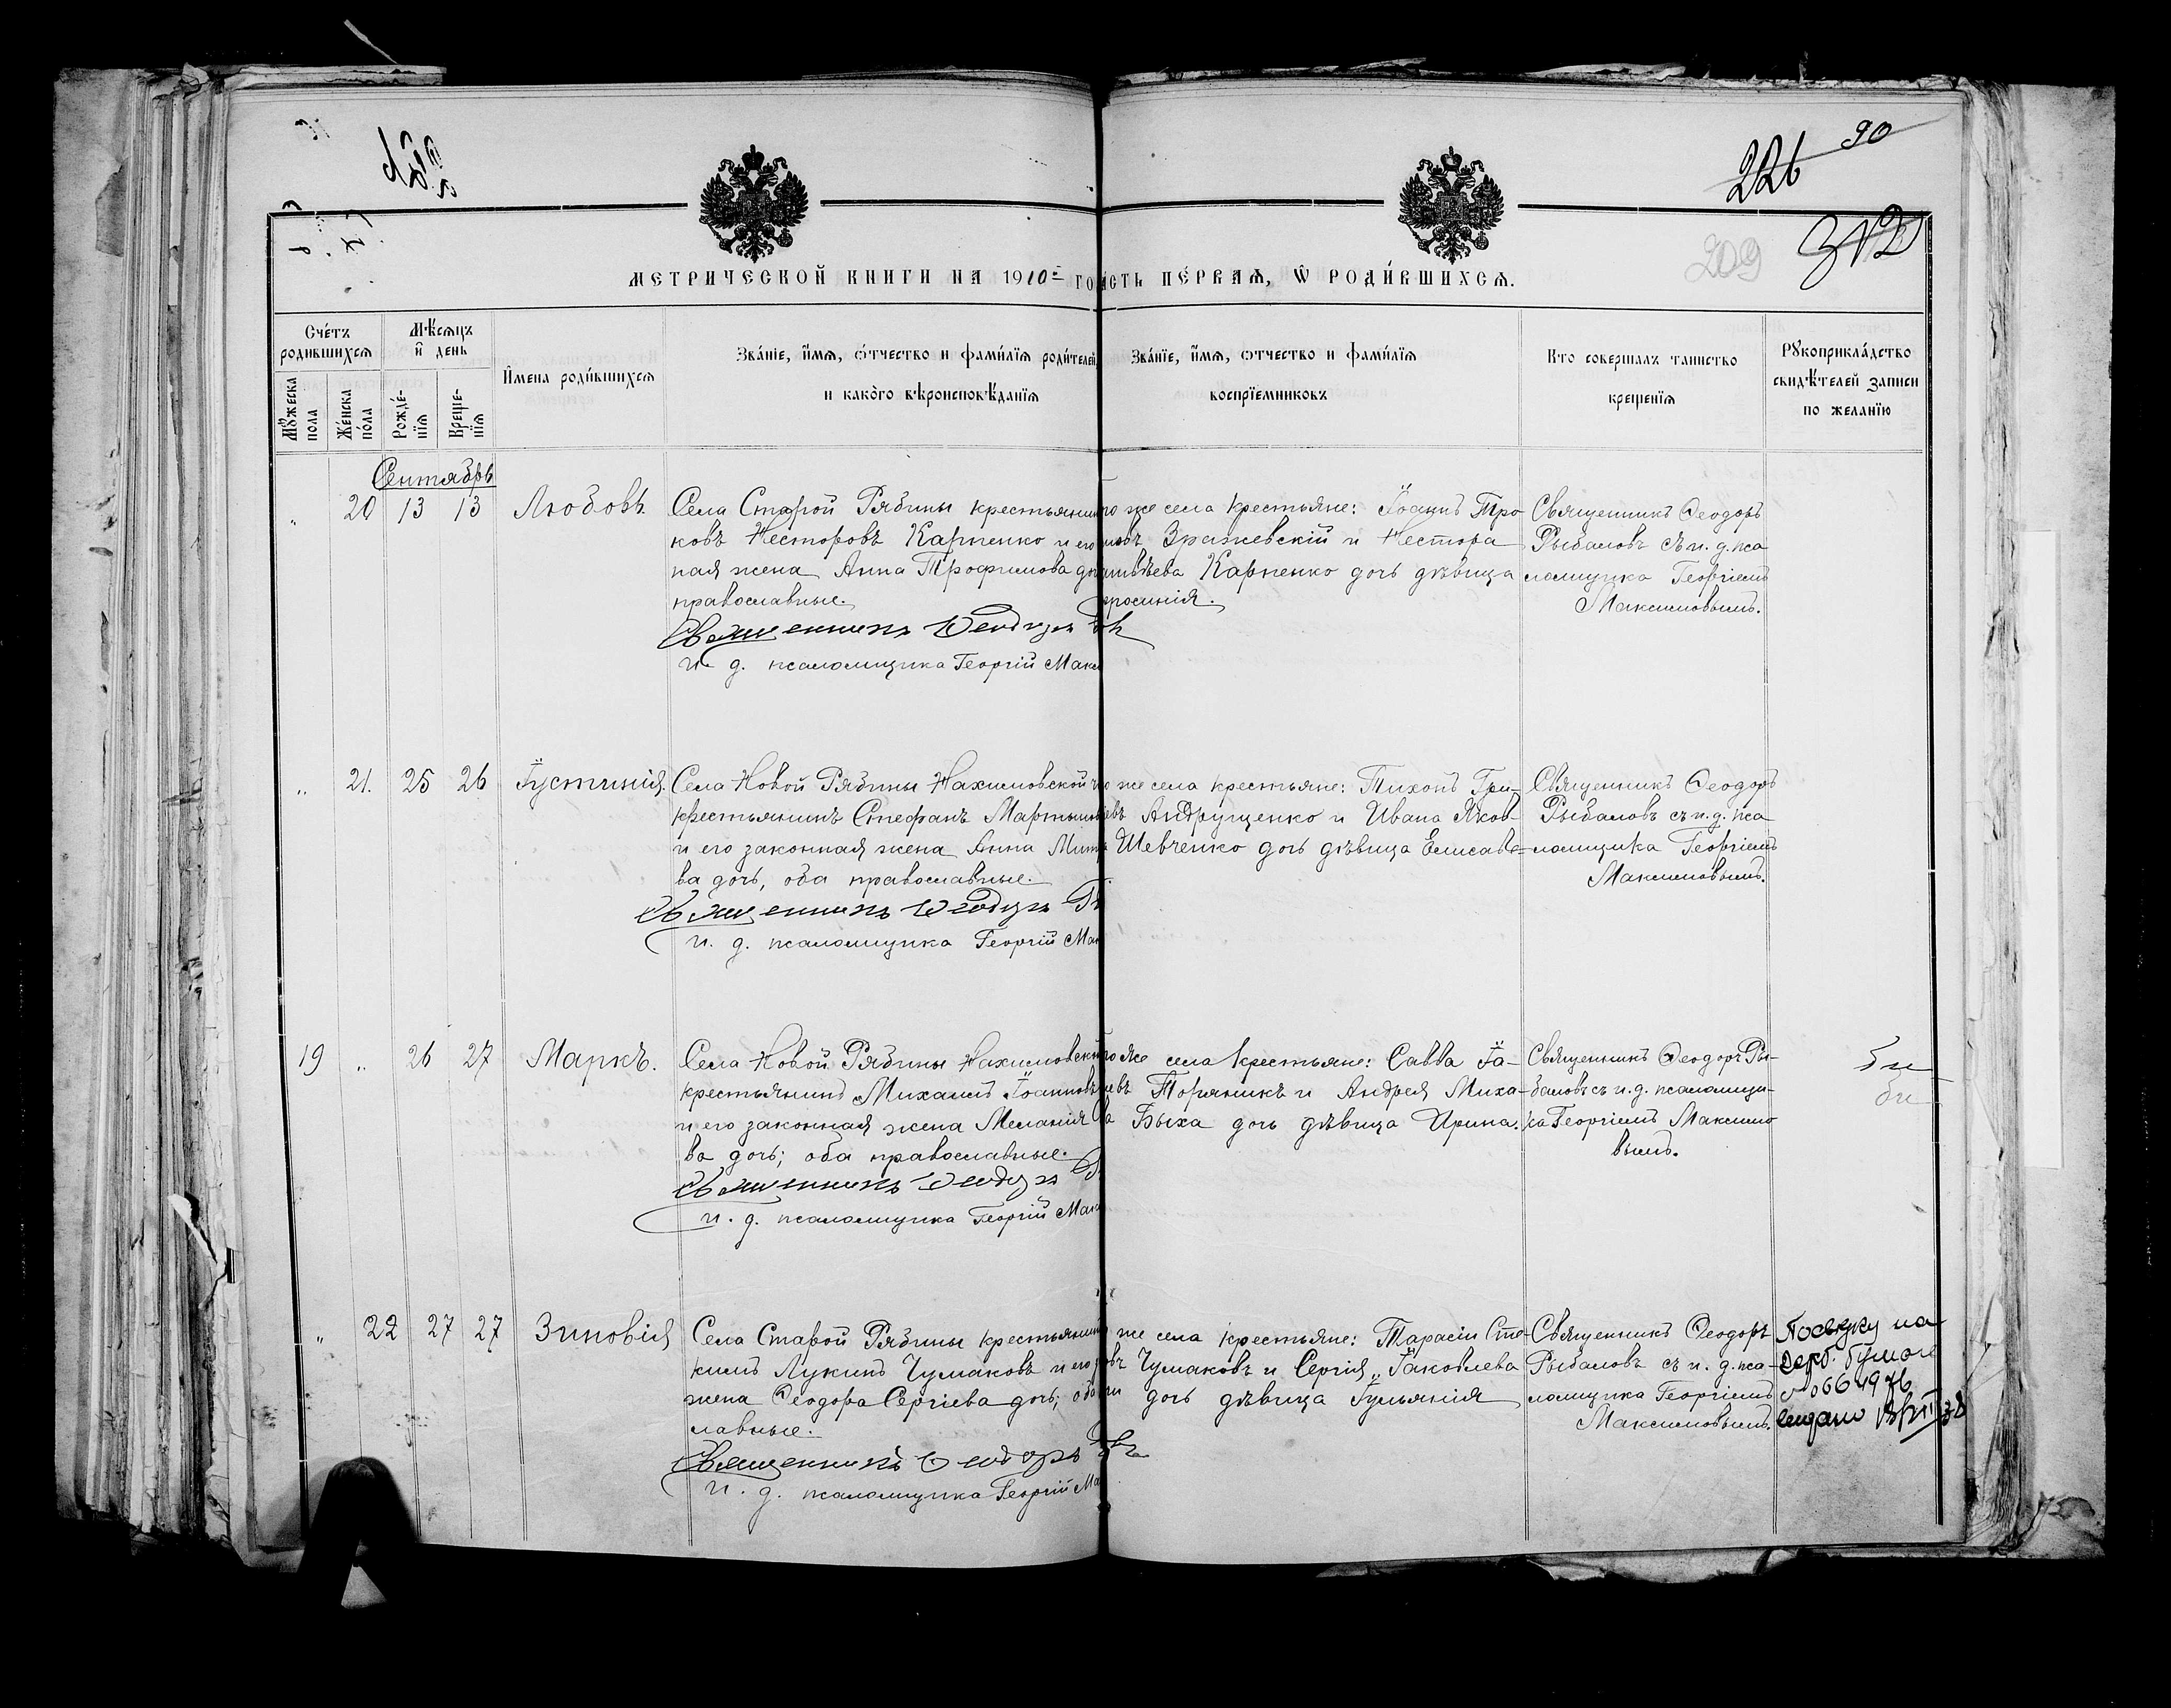 90
226
312
209
МЕТРИЧЕСКОЙ КНИГИ НА 1910 ГО
АСТЬ ПЕ́РВАѦ, Ѡ РОДИ́ВШИХСѦ.
Счéтъ родившихсѧ
Мѣсѧцъ и день
Мꙋжеска пола
Же́нска по́ла
Рожде́-нїѧ
Креще-нїѧ
Имена роди́вшихсѧ
Зва́нїе, и́мѧ, о́тчество и фами́лїѧ роди́телей,
и како́гѡ вѣроисповѣ́данїѧ
Зва́нїе, и́мѧ, ѻтчество и фами́лїѧ
воспрїемниковъ
Кто совершалъ таинство
крещенїѧ
Рꙋкоприкла́дство
свидѣтелей записи
по желанїю
Сентябрь
" 20 13 13 Любовь
Села Старой Рябины крестьянин
ковъ Несторовъ Карпенко и его
ная жена Анна Трофимова до
православные.
Священникъ Ѳеодоръ
и. д. псаломщика Георгій Макс
го же села крестьяне: Іоаннъ Тро-
мовъ Зражевскій и Нестора
Карпенко дочь дѣвица
фросинія.
Священникъ Ѳеодоръ
Рыбаловъ съ и. д. пса
ломщика Георгіемъ
Максимовымъ.
" 21. 25 26 Іустинія.
Села Новой Рябины Нахимовской
крестьянинъ Стефанъ Мартынов
и его законная жена Анна Митр
ва дочь, оба православные.
Священникъ Ѳеодоръ
и. д. псаломщика Георгій Мак
о же села крестьяне: Тихонъ Гри-
евъ Андрущенко и Ивана Яков-
Шевченко дочь дѣвица Елисаве-
Священникъ Ѳеодоръ
Рыбаловъ съ и. д. пса
ломщика Георгіемъ
Максимовымъ.
19 " 26 27 Маркъ.
Села Новой Рябины Нахимовской
крестьянинъ Михаилъ Іоанновъ
и его законная жена Меланія
ва дочь; оба православные.
Священникъ Ѳеодоръ
и. д. псаломщика Георгій Мак
го же села крестьяне: Савва Іа-
евъ Торяникъ и Андрея Миха-
ва Быха дочь дѣвица Ирина.
Священникъ Ѳеодоръ Ры-
баловъ съ и. д. псаломщи-
ка Георгіемъ Максимо
вымъ.
" 22 27 27 Зиновія
Села Старой Рябины крестьянин
кимъ Лукинъ Чумаковъ и его
жена Ѳеодора Сергіева дочь; оба
лавные.
Священникъ Ѳеодоръ
и. д. псаломщика Георгій Ма
же села крестьяне: Тарасій Сте-
Чумаковъ и Сергія Іаковлева
дочь дѣвица Іуліанія
Священникъ Ѳеодоръ
Рыбаловъ съ и. д. пса-
ломщика Георгіемъ
Максимовымъ.
на